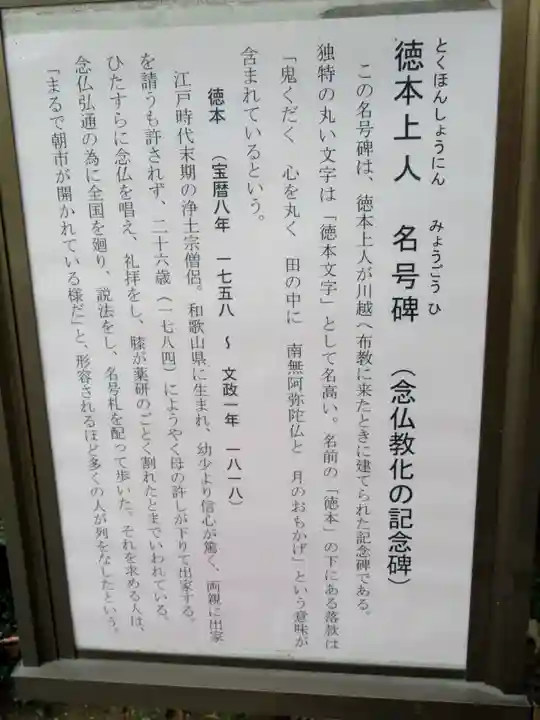 とくほんしょうにん　みょうごうひ
徳本上人　名号碑　（念仏教化の記念碑）
この名号碑は、徳本上人が川越へ布教に来たときに建てられた記念碑である。
独特の丸い文字は「徳本文字」として名高い。名前の「徳本」の下にある落款は
「鬼くだく　心を丸く　田の中に　南無阿弥陀仏と　月のおもかげ」という意味が
含まれているという。
徳本　（宝暦八年　一七五八　～　文政一年　一八一八）
江戸時代末期の浄土宗僧侶。和歌山県に生まれ、幼少より信心が篤く、両親に出家
を請うも許されず、二十六歳（一七八四）にようやく母の許しが下りて出家する。
ひたすらに念仏を唱え、礼拝をし、膝が薬研のごとく割れたとまでいわれている。
念仏弘通の為に全国を廻り、説法をし、名号札を配って歩いた。それを求める人は、
「まるで朝市が開かれている様だ」と、形容されるほど多くの人が列をなしたという。